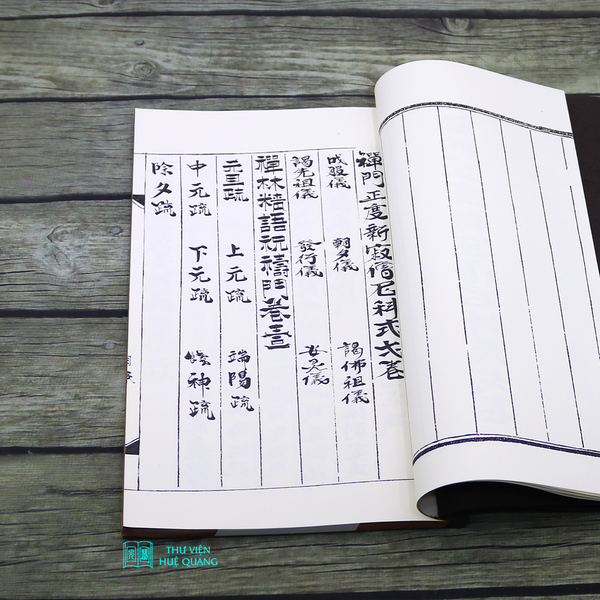 禪門正度新寂僧尼科式大卷
成服儀 朝夕儀 謁佛祖儀
謁先祖儀 發行儀 安灵儀
禪林精語祝禱門卷壹
元旦疏 上元疏 端陽疏
中元疏 下元疏 神疏
除夕疏
THƯ VIỆN
HUỆ QUANG